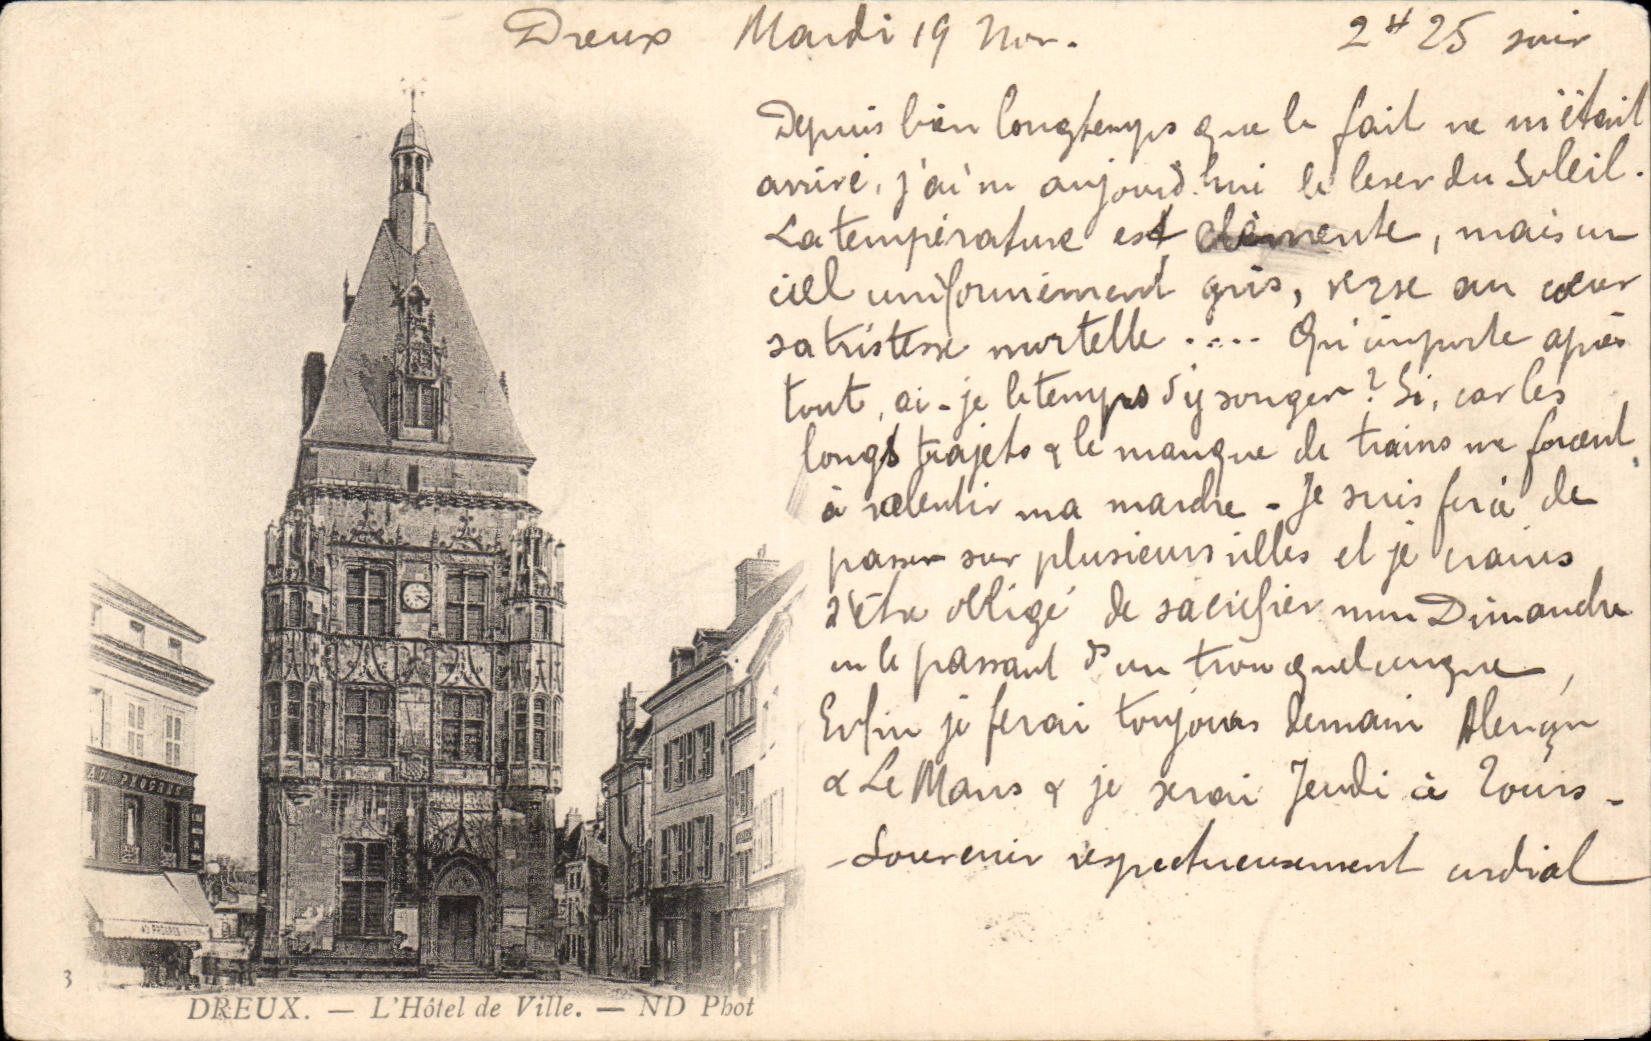 Dreux Mardi 19 Nov. 2H 25 soir
Depuis bien longtemps que le fait ne m'était
arrivé, j'ai vu aujourd'hui le lever du Soleil.
La température est clémente, mais un
ciel uniformément gris, verse au cœur
sa tristesse mortelle .... Qu'importe après
tout, ai-je le temps d'y songer? Si, car les
longs trajets & le manque de trains me forcent,
à ralentir ma marche - Je suis forcé de
passer sur plusieurs villes et je crains
d'être obligé de sacrifier mon Dimanche
en le passant d's un trou quelconque,
Enfin je ferai toujours demain Alençon
& Le Mans & je serai Jeudi à Tours -
- Souvenir respectueusement cordial
AU PROGRES
AU PROGRES
3
DREUX. — L'Hôtel de Ville. — ND Phot